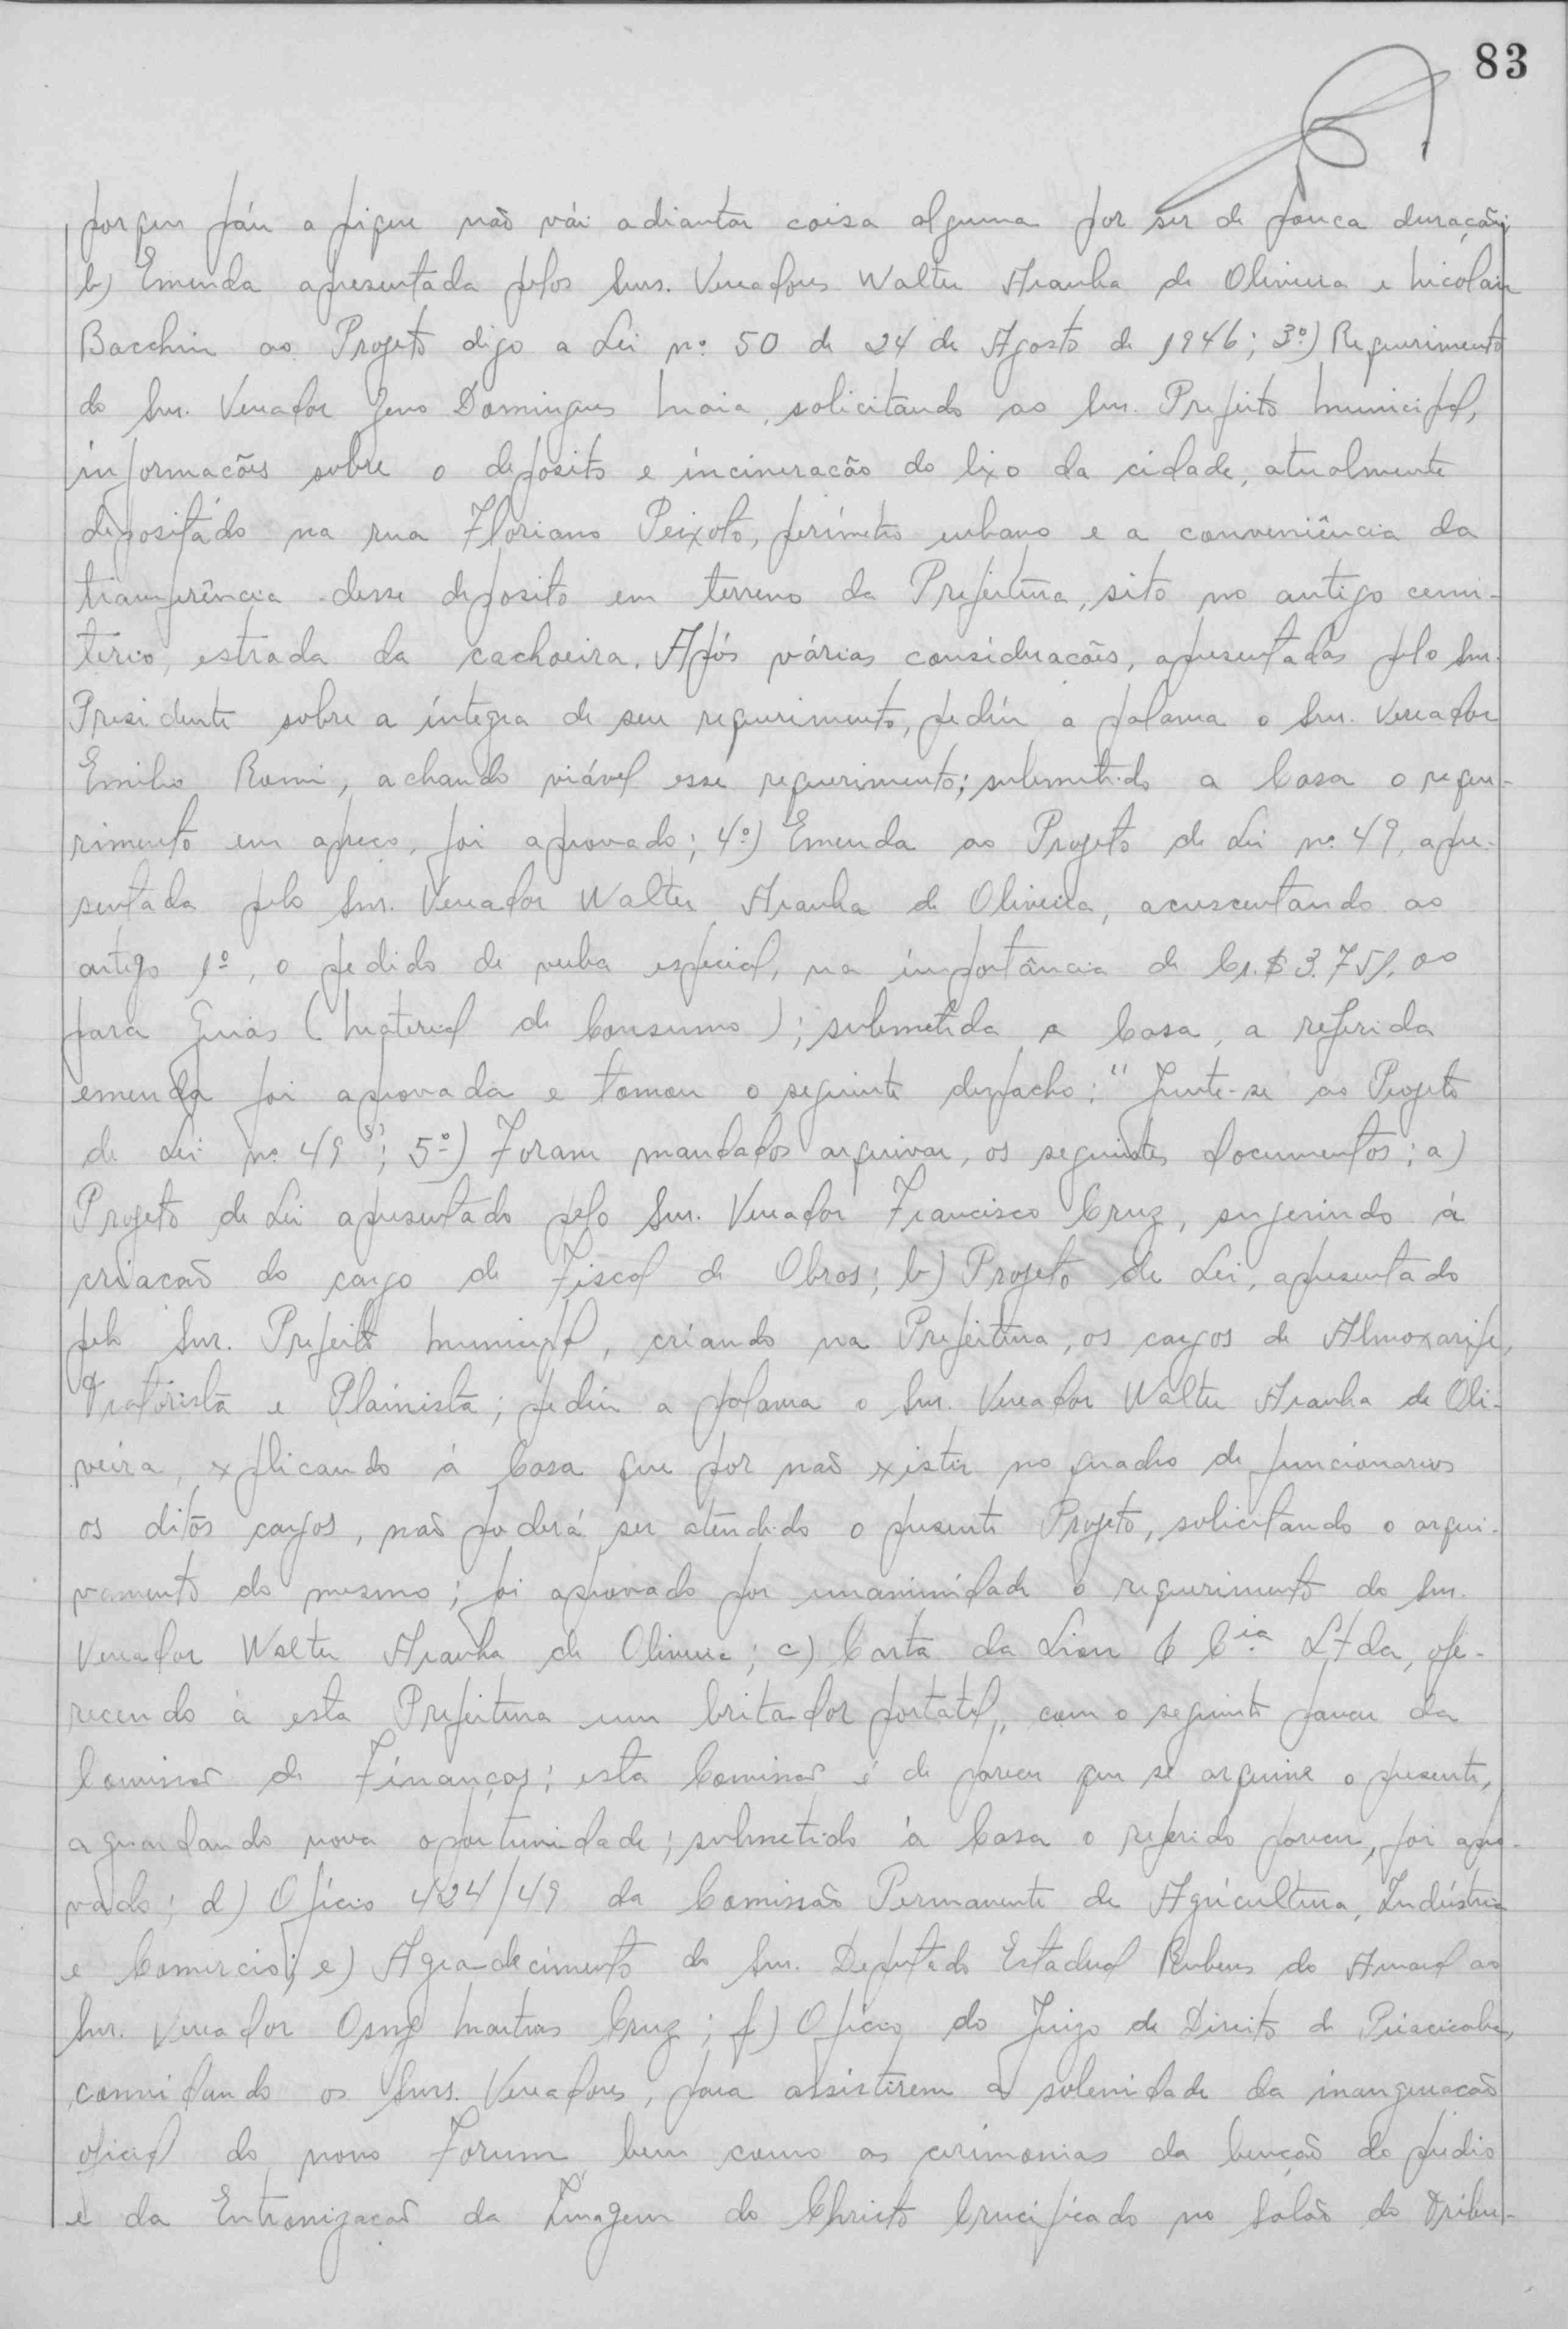 83
porque páu a pique não vái adiantar coisa alguma por ser de pouca duração;
b) Emenda apresentada pelos Snrs. Vereadores Walter Aranha de Oliveira e Nicolau
Bacchin ao Projeto digo a Lei nº 50 de 24 de Agosto de 1946; 3º) Requerimento
do Snr. Vereador Zeno Domingues Maia, solicitando ao Snr. Prefeito Municipal,
informacões sobre o deposito e incineracão do lixo da cidade, atualmente
depositádo na rua Floriano Peixoto, perímetro urbano e a conveniência da
tranferência desse deposito em terreno da Prefeitura, sito no antigo cemi-
terio, estrada da cachoeira. Após várias consideracões, apresentadas pelo Snr.
Presidente sobre a íntegra de seu requerimento, pediu a palavra o Snr. Vereador
Emilio Romi, achando viável esse requerimento; submetido a Casa o reque-
rimento em apreço, foi aprovado; 4º) Emenda ao Projeto de Lei nº 49, apre-
sentada pelo Snr. Vereador Walter Aranha de Oliveira, acrescentando ao
artigo 1º, o pedido de verba especial, na importância de Cr.$ 3.751,00
para Guias (Material de Consumo); submetida a Casa, a referida
emenda foi aprovada e tomou o seguinte despacho: "Junte-se ao Projeto
de Lei nº 49"; 5º) Foram mandados arquivar, os seguintes documentos: a)
Projeto de Lei apresentado pelo Snr. Vereador Francisco Cruz, sugerindo á
criacão do cargo de Fiscal de Obras; b) Projeto de Lei, apresentado
pelo Snr. Prefeito Municipal, criando na Prefeitura, os cargos de Almoxarife,
Tratorista e Plainista; pediu a palavra o Snr. Vereador Walter Aranha de Oli-
veira, explicando á Casa que por não existir no quadro de funcionarios
os ditos cargos, não poderá ser atendido o presente Projeto, solicitando o arqui-
vamento do mesmo; foi aprovado por unanimidade o requerimento do Snr.
Vereador Walter Aranha de Oliveira; c) Carta da Lion & Cia Ltda, ofe-
recendo à esta Prefeitura um britador portatil, com o seguinte parecer da
Comissão de Finanças: esta Comissão é de parecer que se arquive o presente,
aguardando nova oportunidade; submetido à Casa o referido parecer, foi apro-
vado; d) Ofício 424/49 da Comissão Permanente de Agricultura, Indústria
e Comercio; e) Agradecimento do Snr. Deputado Estadual Rubens do Amaral ao
Snr. Vereador Martins Cruz; f) Oficio do Juizo de Direito de Piracicaba,
convidando os Snrs. Vereadores, para assistirem a solenidade da inauguracão
oficial do novo Forum, bem como as cerimonias da bencão do prédio
e da Entronizacão da Imagem do Christo Crucificado no Salão do Tribu-